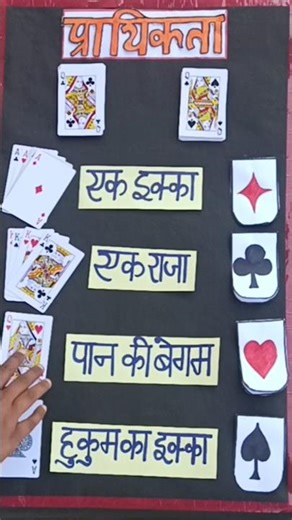 प्रायिकता
एक इक्का
एक राजा
पान की बेगम
हुकुम का इक्का